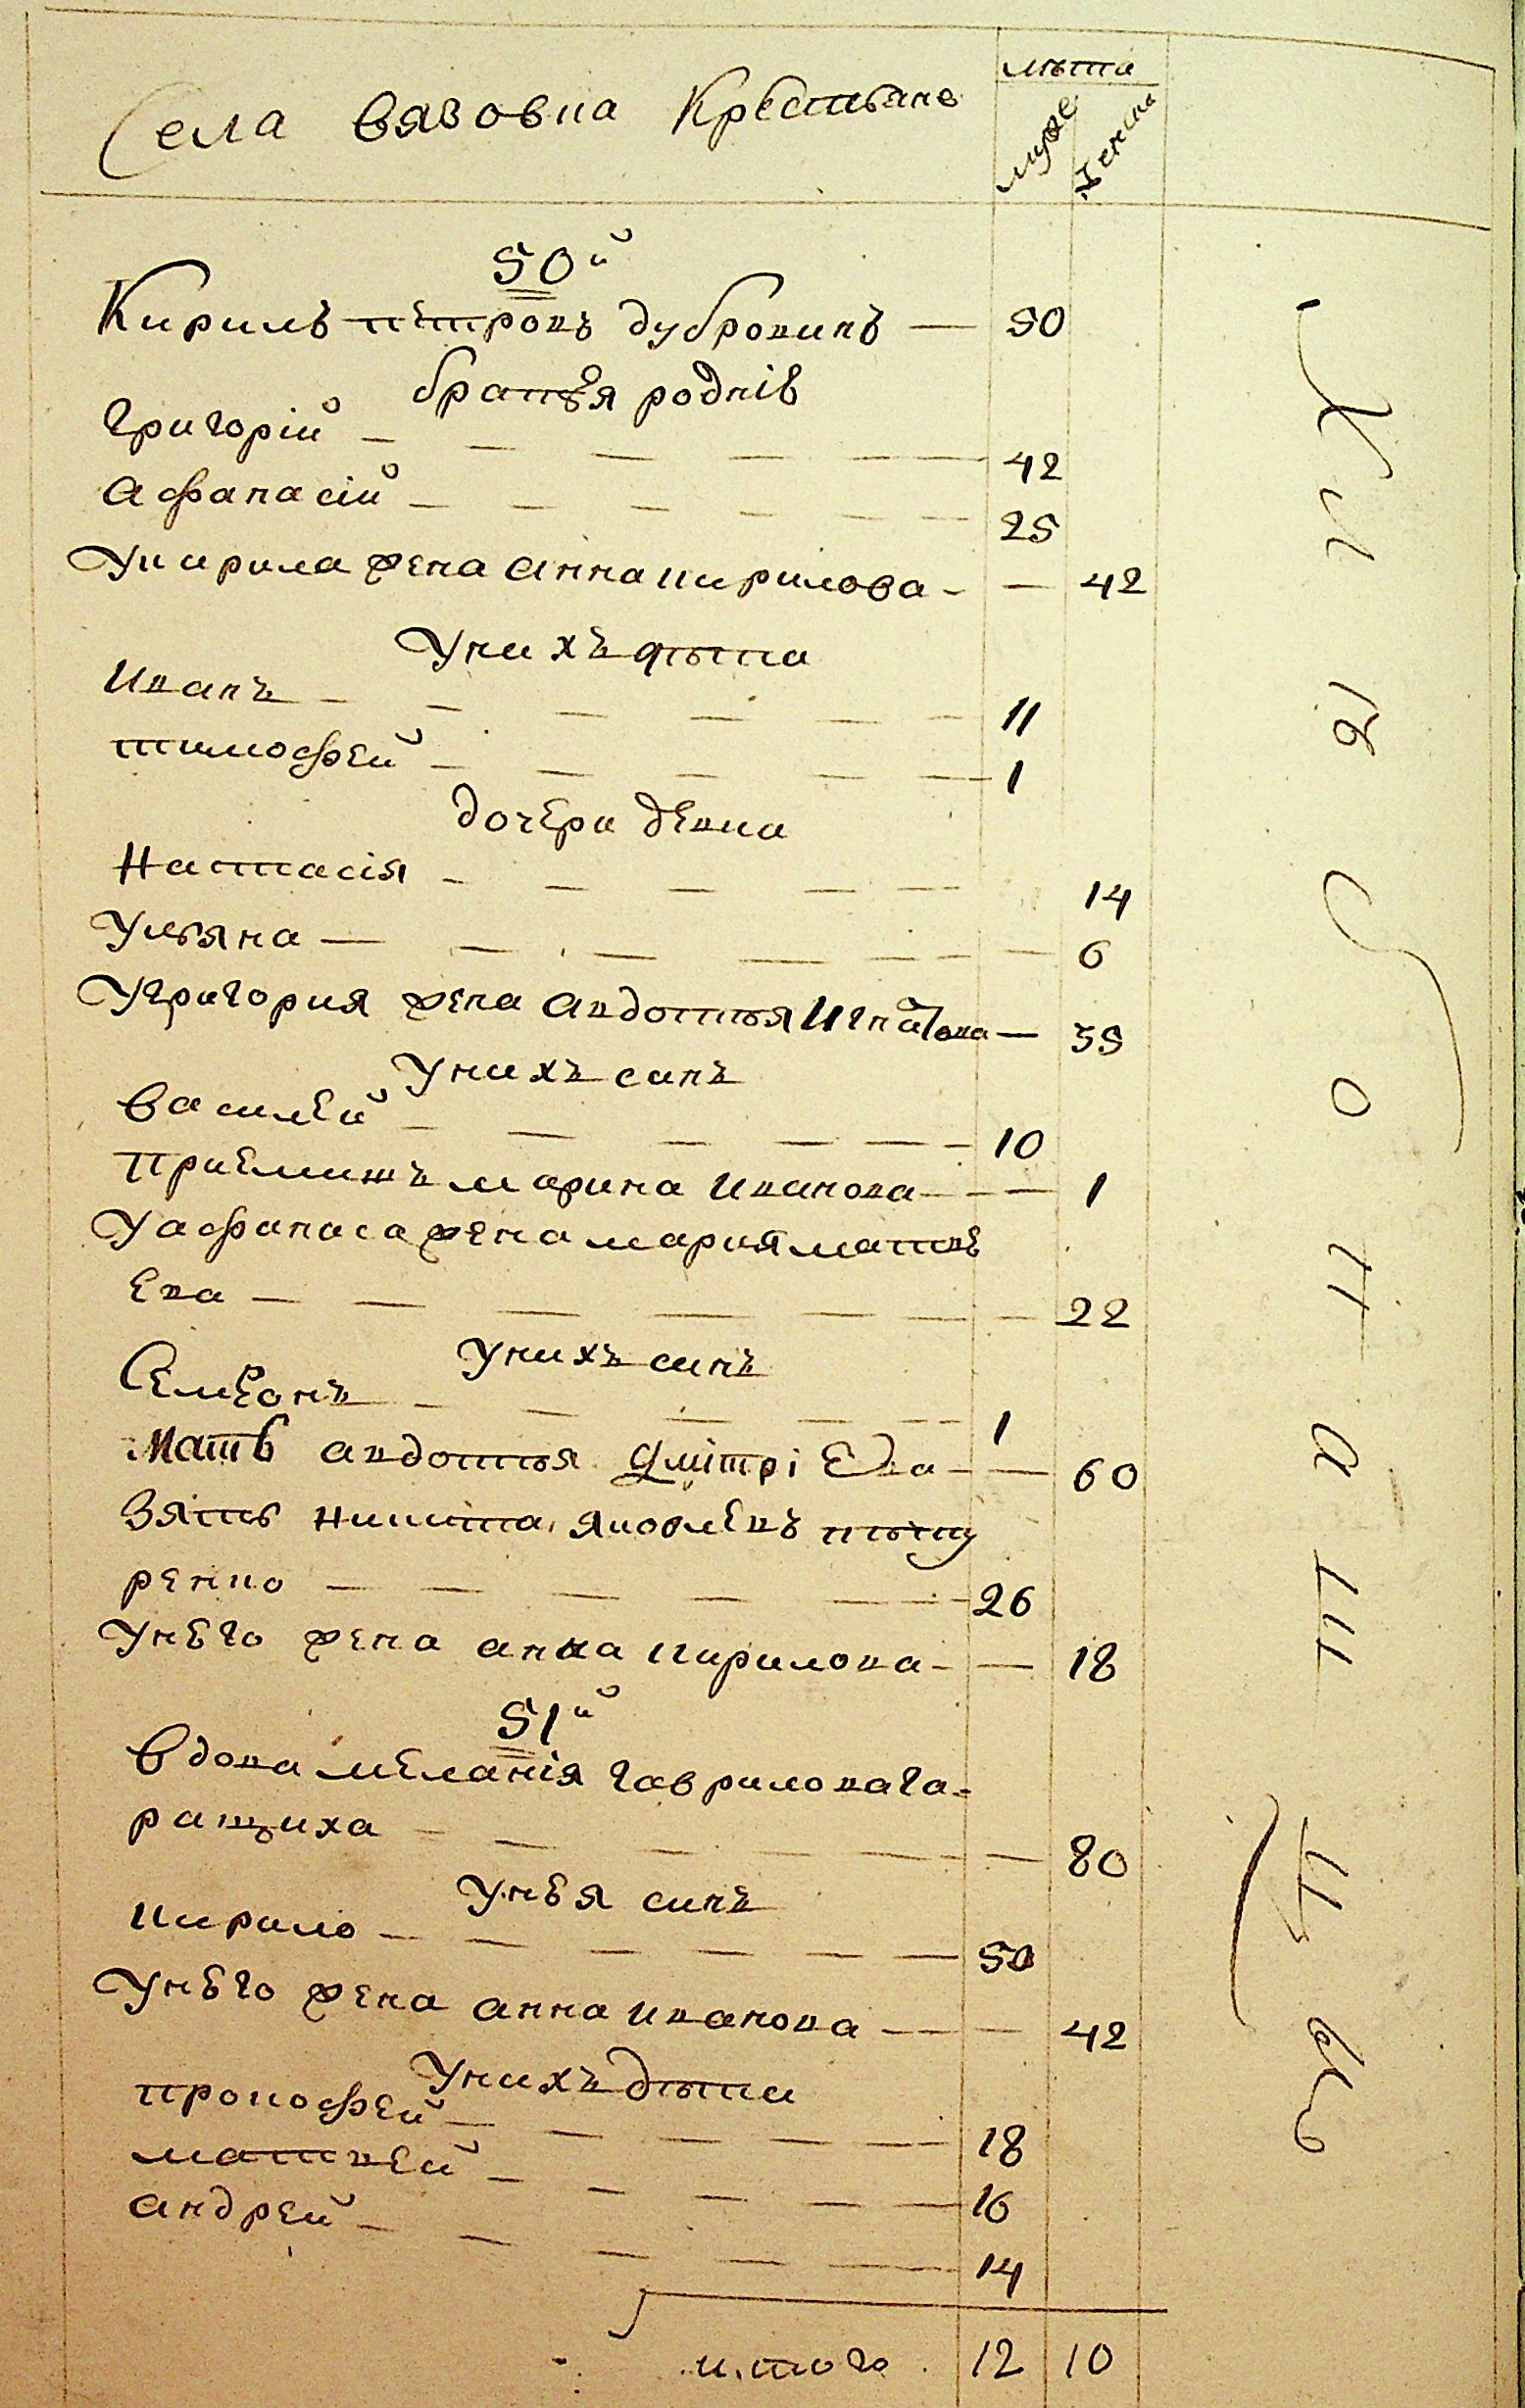 Села Вязовка Крестьяне
лѣта
муже
женска
50й
Кирилъ Петровъ Дубровинъ — 50
братья родніе
Григорій — 42
Афанасій — 25
У Кирила жена Анна Кирилова — 42
У нихъ дѣти
Иванъ — 11
Тимофей — 1
дочери девки
Настасія — 14
Ульяна — 6
У Григория жена Авдотья Игнатова — 35
У нихъ синъ
Василей — 10
приемишъ Марина Иванова — 1
У Афанаса жена Мария Матве
ева — 22
У нихъ синъ
Семеонъ — 1
Мать Авдотья Дмітріева — 60
Зять Никита Яковлевъ
ренко — 26
У него жена Анна Кирилова — 18
51й
Вдова Меланія Гаврилова Га-
ращиха — 80
У нея синъ
Кирило — 50
У него жена Анна Иванова — 42
У нихъ дѣти
Прокофей — 18
Матвей — 16
Андрей — 14
итого 12 10